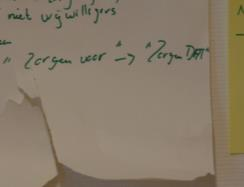 met vrijwilligers
en
" Zorgen voor " → " Zorgen DAT"